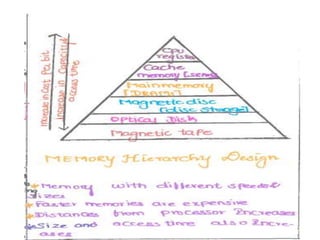 Increase in Cost Per bit
Increase in Capacity &
access time
CPU
register
Cache
memory [SRAM]
Main memory
[DRAM]
Magnetic disc
[disc storage]
Optical Disk
Magnetic tape
MEMORY Hierarchy Design
Memory with different speed &
sizes
Faster memories are expensive
Distances from processor Increases
Size and access time also Incre-
ases